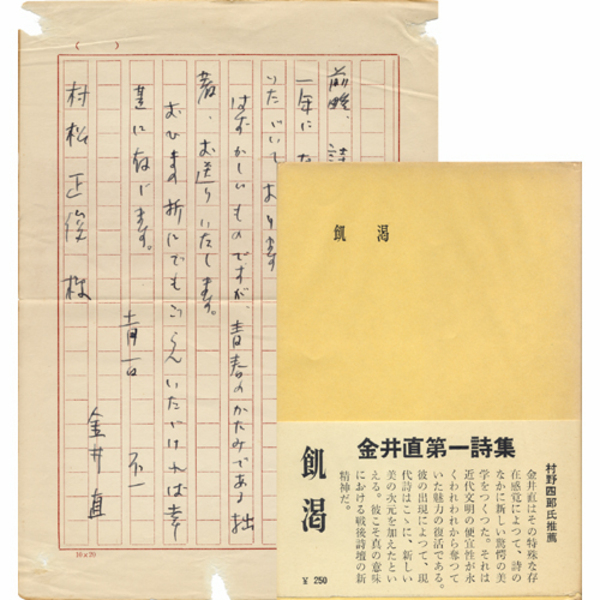 ( )
前略、詩
一年にな
いたゞいております
はずかしいものですが、青春のかたみである拙
著、お送りいたします。
おひまの折にでもごらんいたゞければ幸
甚に存じます。
十一月一日 不一
金井直
村松正俊様
10×20
飢渇
金井直第一詩集
飢渇
¥ 250
村野四郎氏推薦
金井直はその特殊な存
在感覚によつて、詩の
なかに新しい驚愕の美
学をつくつた。それは
近代文明の便宜性が永
くわれわれから奪つて
いた魅力の復活である。
彼の出現によつて、現
代詩はこゝに、新しい
美の次元を加えたとい
える。彼こそ真の意味
における戦後詩壇の新
精神だ。